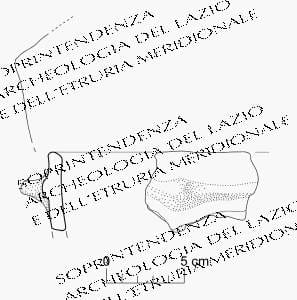 SOPRINTENDENZA
ARCHEOLOGIA DEL LAZIO
E DELL'ETRURIA MERIDIONALE
SOPRINTENDENZA
ARCHEOLOGIA DEL LAZIO
E DELL'ETRURIA MERIDIONALE
0 5 cm
SOPRINTENDENZA
ARCHEOLOGIA DEL LAZIO